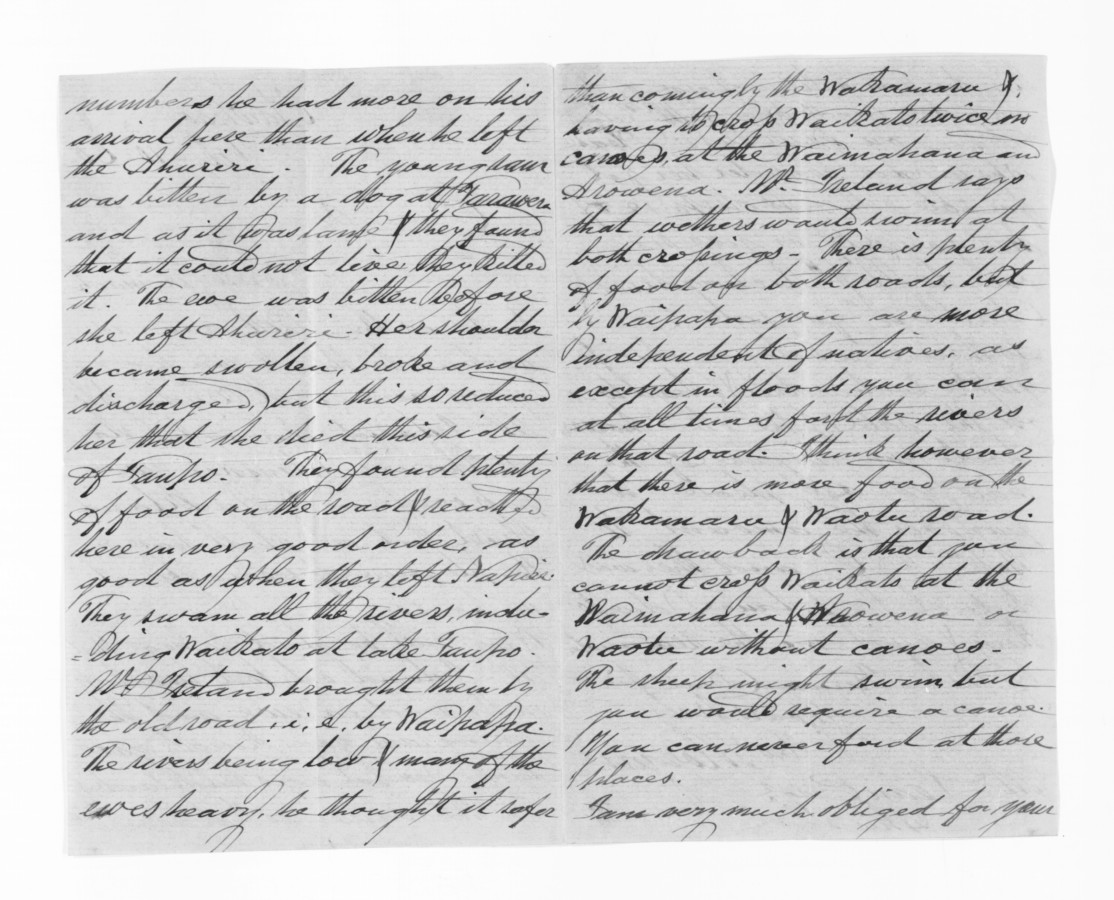 numbers he had more on his
arrival here than when he left
the Ahuriri. The young ram
was bitten by a dog at Tarawera
and as it was lame & they found
that it could not live they killed
it. The ewe was bitten before
she left Ahuriri. Her shoulder
became swollen, broke and
discharged, but this so reduced
her that she died this side
of Taupo. They found plenty
of food on the road & reached
here in very good order, as
good as when they left Napier.
They swam all the rivers, inclu-
=ding Waikato at lake Taupo.
Mr. Ireland brought them by
the old road, i, e, by Waipapa.
The rivers being low & many of the
ewes heavy, he thought it safer
than coming by the Wakamaru &
having to cross Waikato twice in
canoes, at the Waimahana and
Arowena. Mr. Ireland says
that wethers would swim at
both crossings - There is plenty
of food on both roads, but
by Waipapa you are more
independent of natives, as
except in floods you can
at all times ford the rivers
on that road. I think however
that there is more food on the
Wakamaru & Waotu road.
The drawback is that you
cannot cross Waikato at the
Waimahana & Arowena or
Waotu without canoes -
The sheep might swim, but
you would require a canoe.
You can never ford at those
places.
I am very much obliged for your